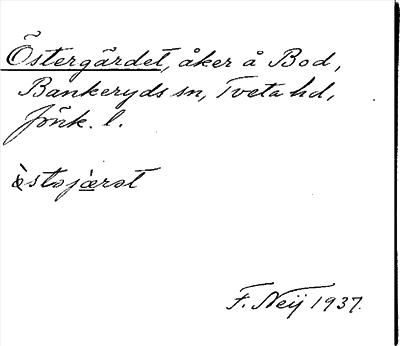 Östergärdet, åker å Bod,
Bankeryds sn, Tveta hd,
Jönk. l.
F. Neij 1937.